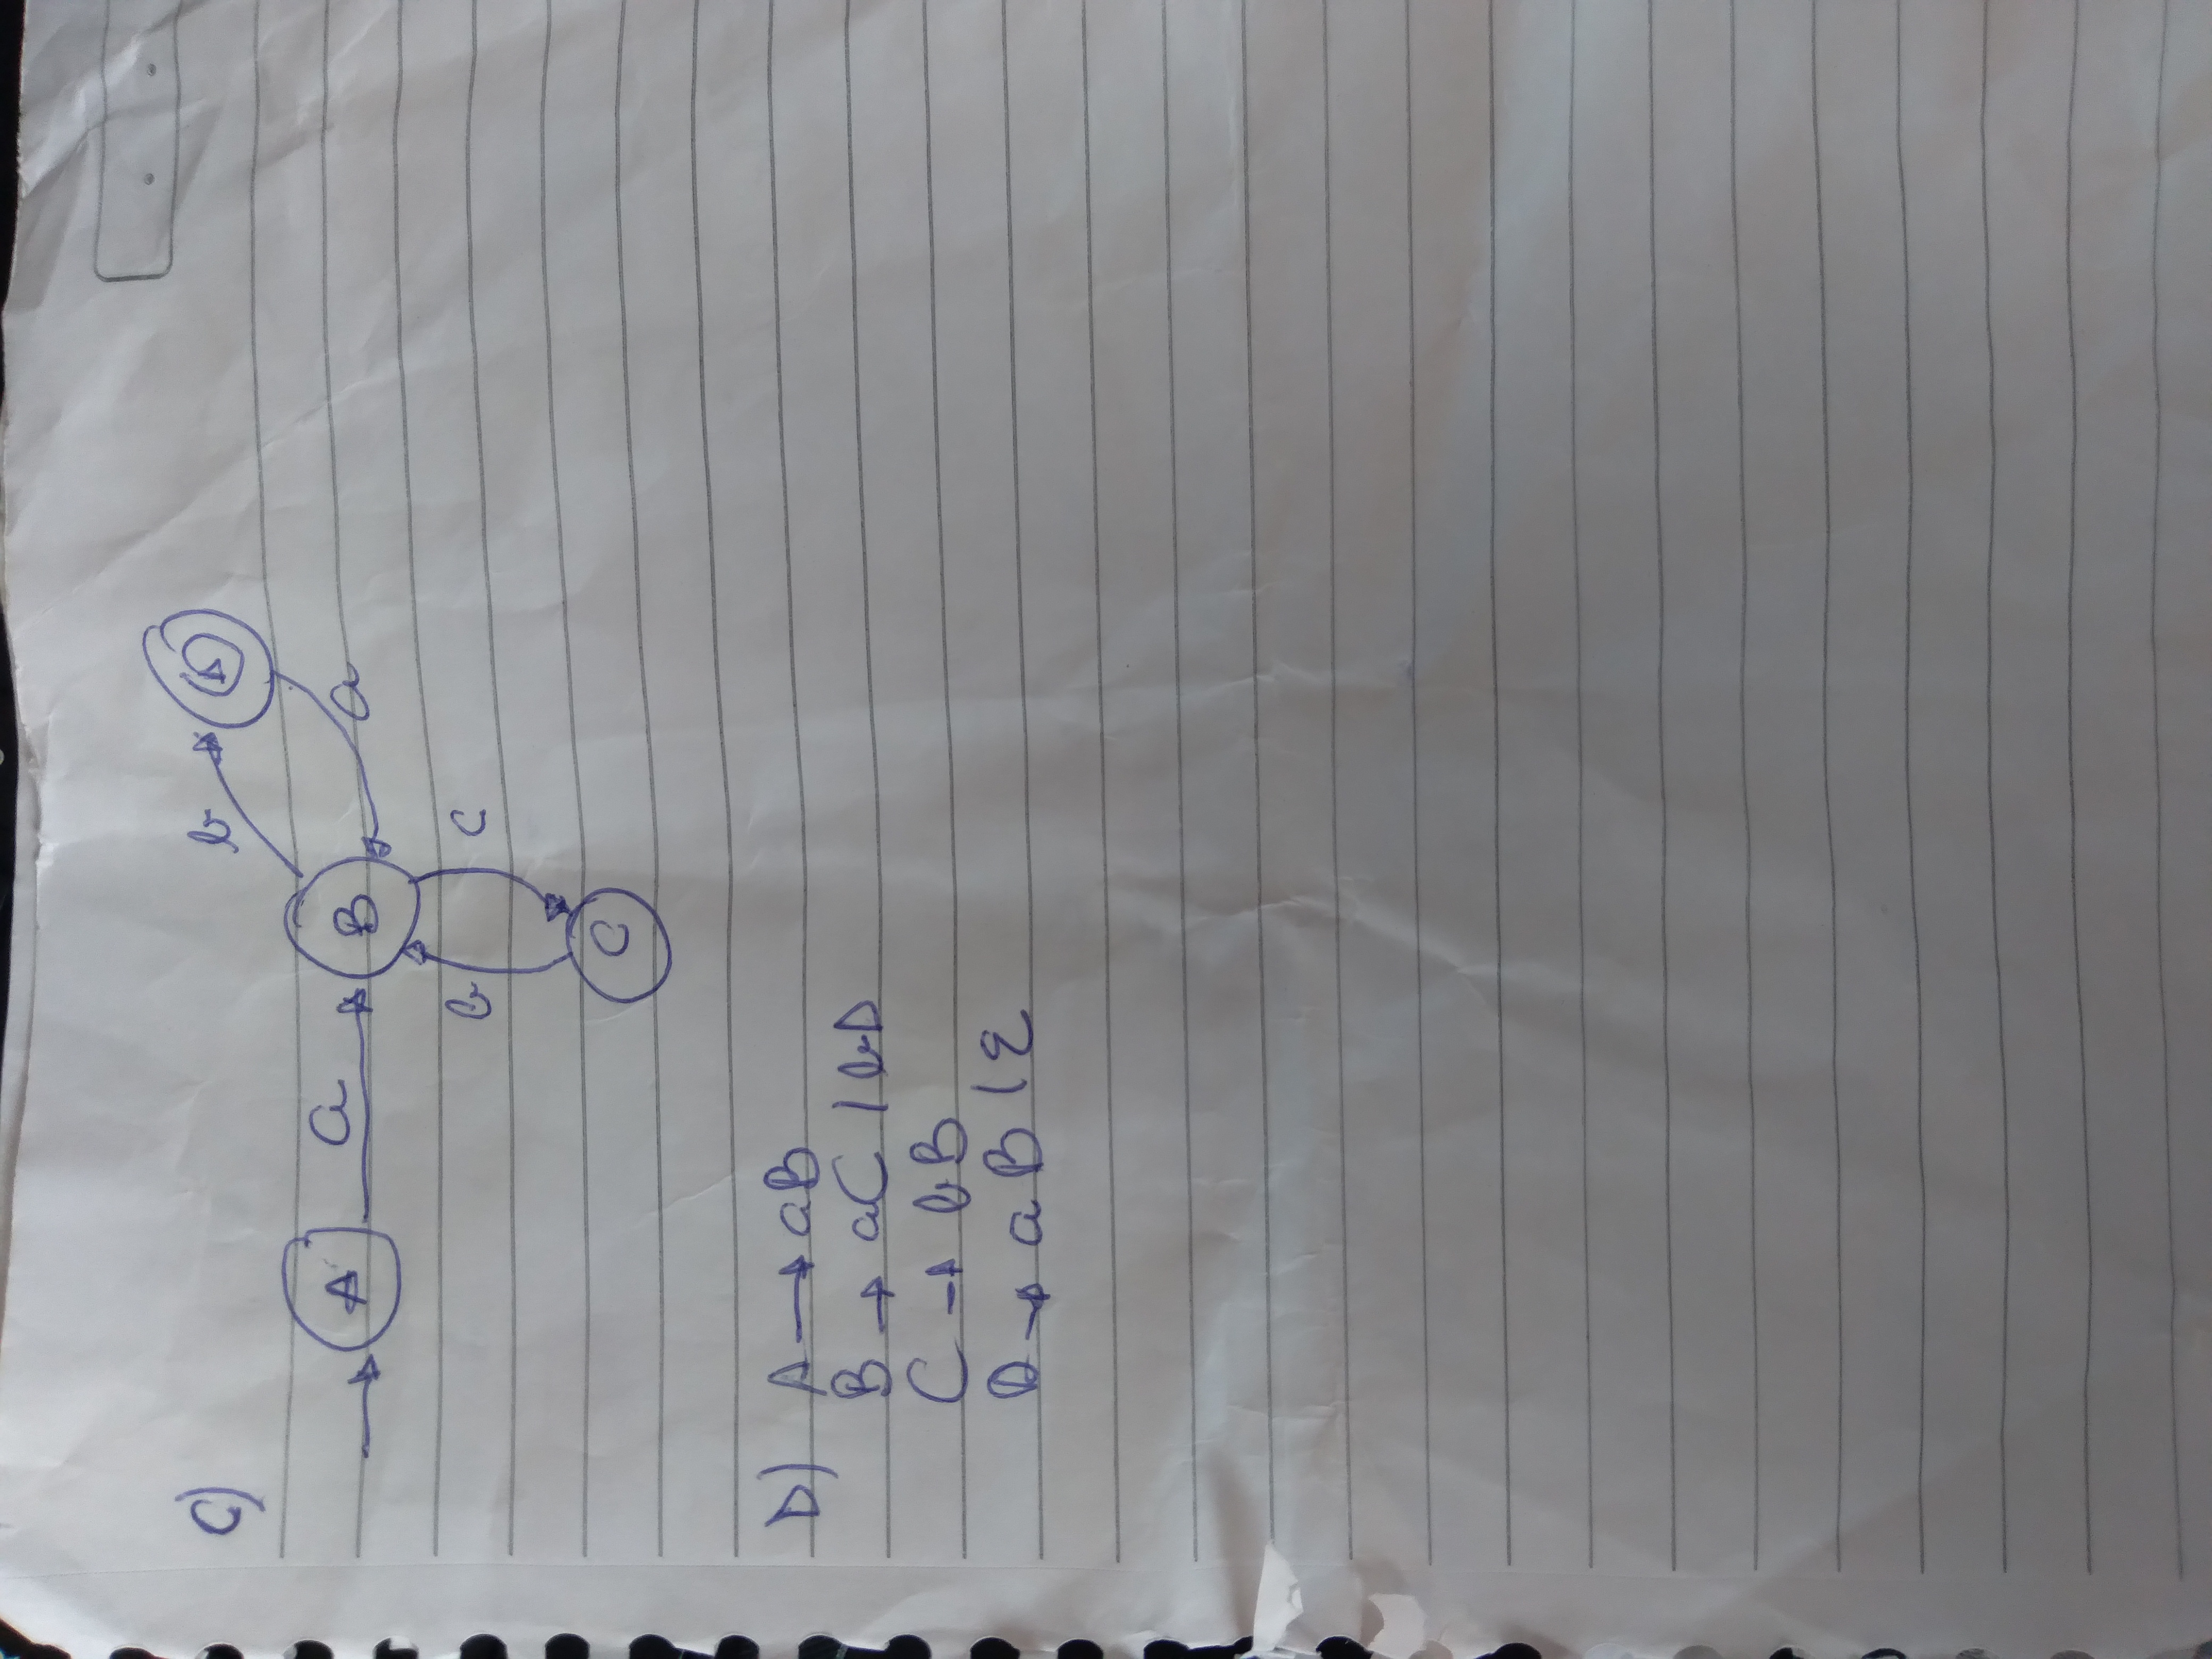 C)
b
D
A
a
B
a
b
c
C
D) A → aB
B → aC | bD
C → bB
D → aB | ε